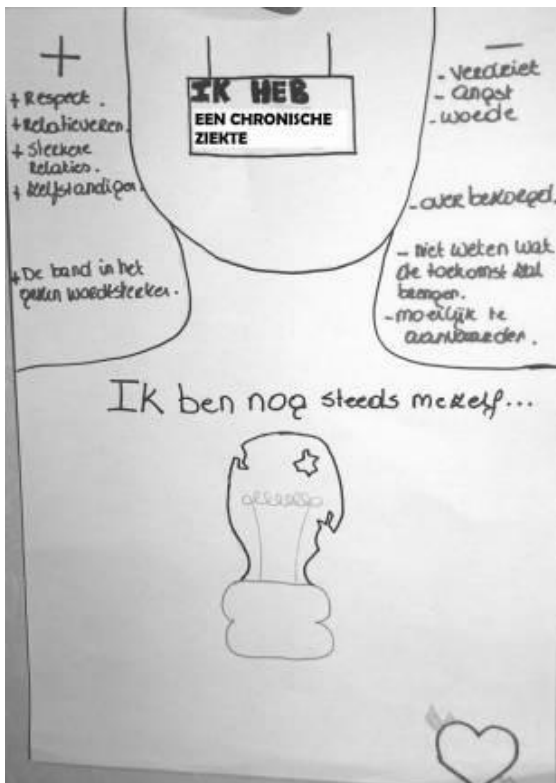 +
+ Respect.
+ Relativeren.
+ Sterkere
Relaties.
+ Zelfstandiger.
+ De band in het
gezin wordt sterker.
IK HEB
EEN CHRONISCHE
ZIEKTE
—
- verdriet
- angst
- woede
- overbezorgd.
- niet weten wat
de toekomst zal
brengen.
- moeilijk te
aanvaarden.
Ik ben nog steeds mezelf...